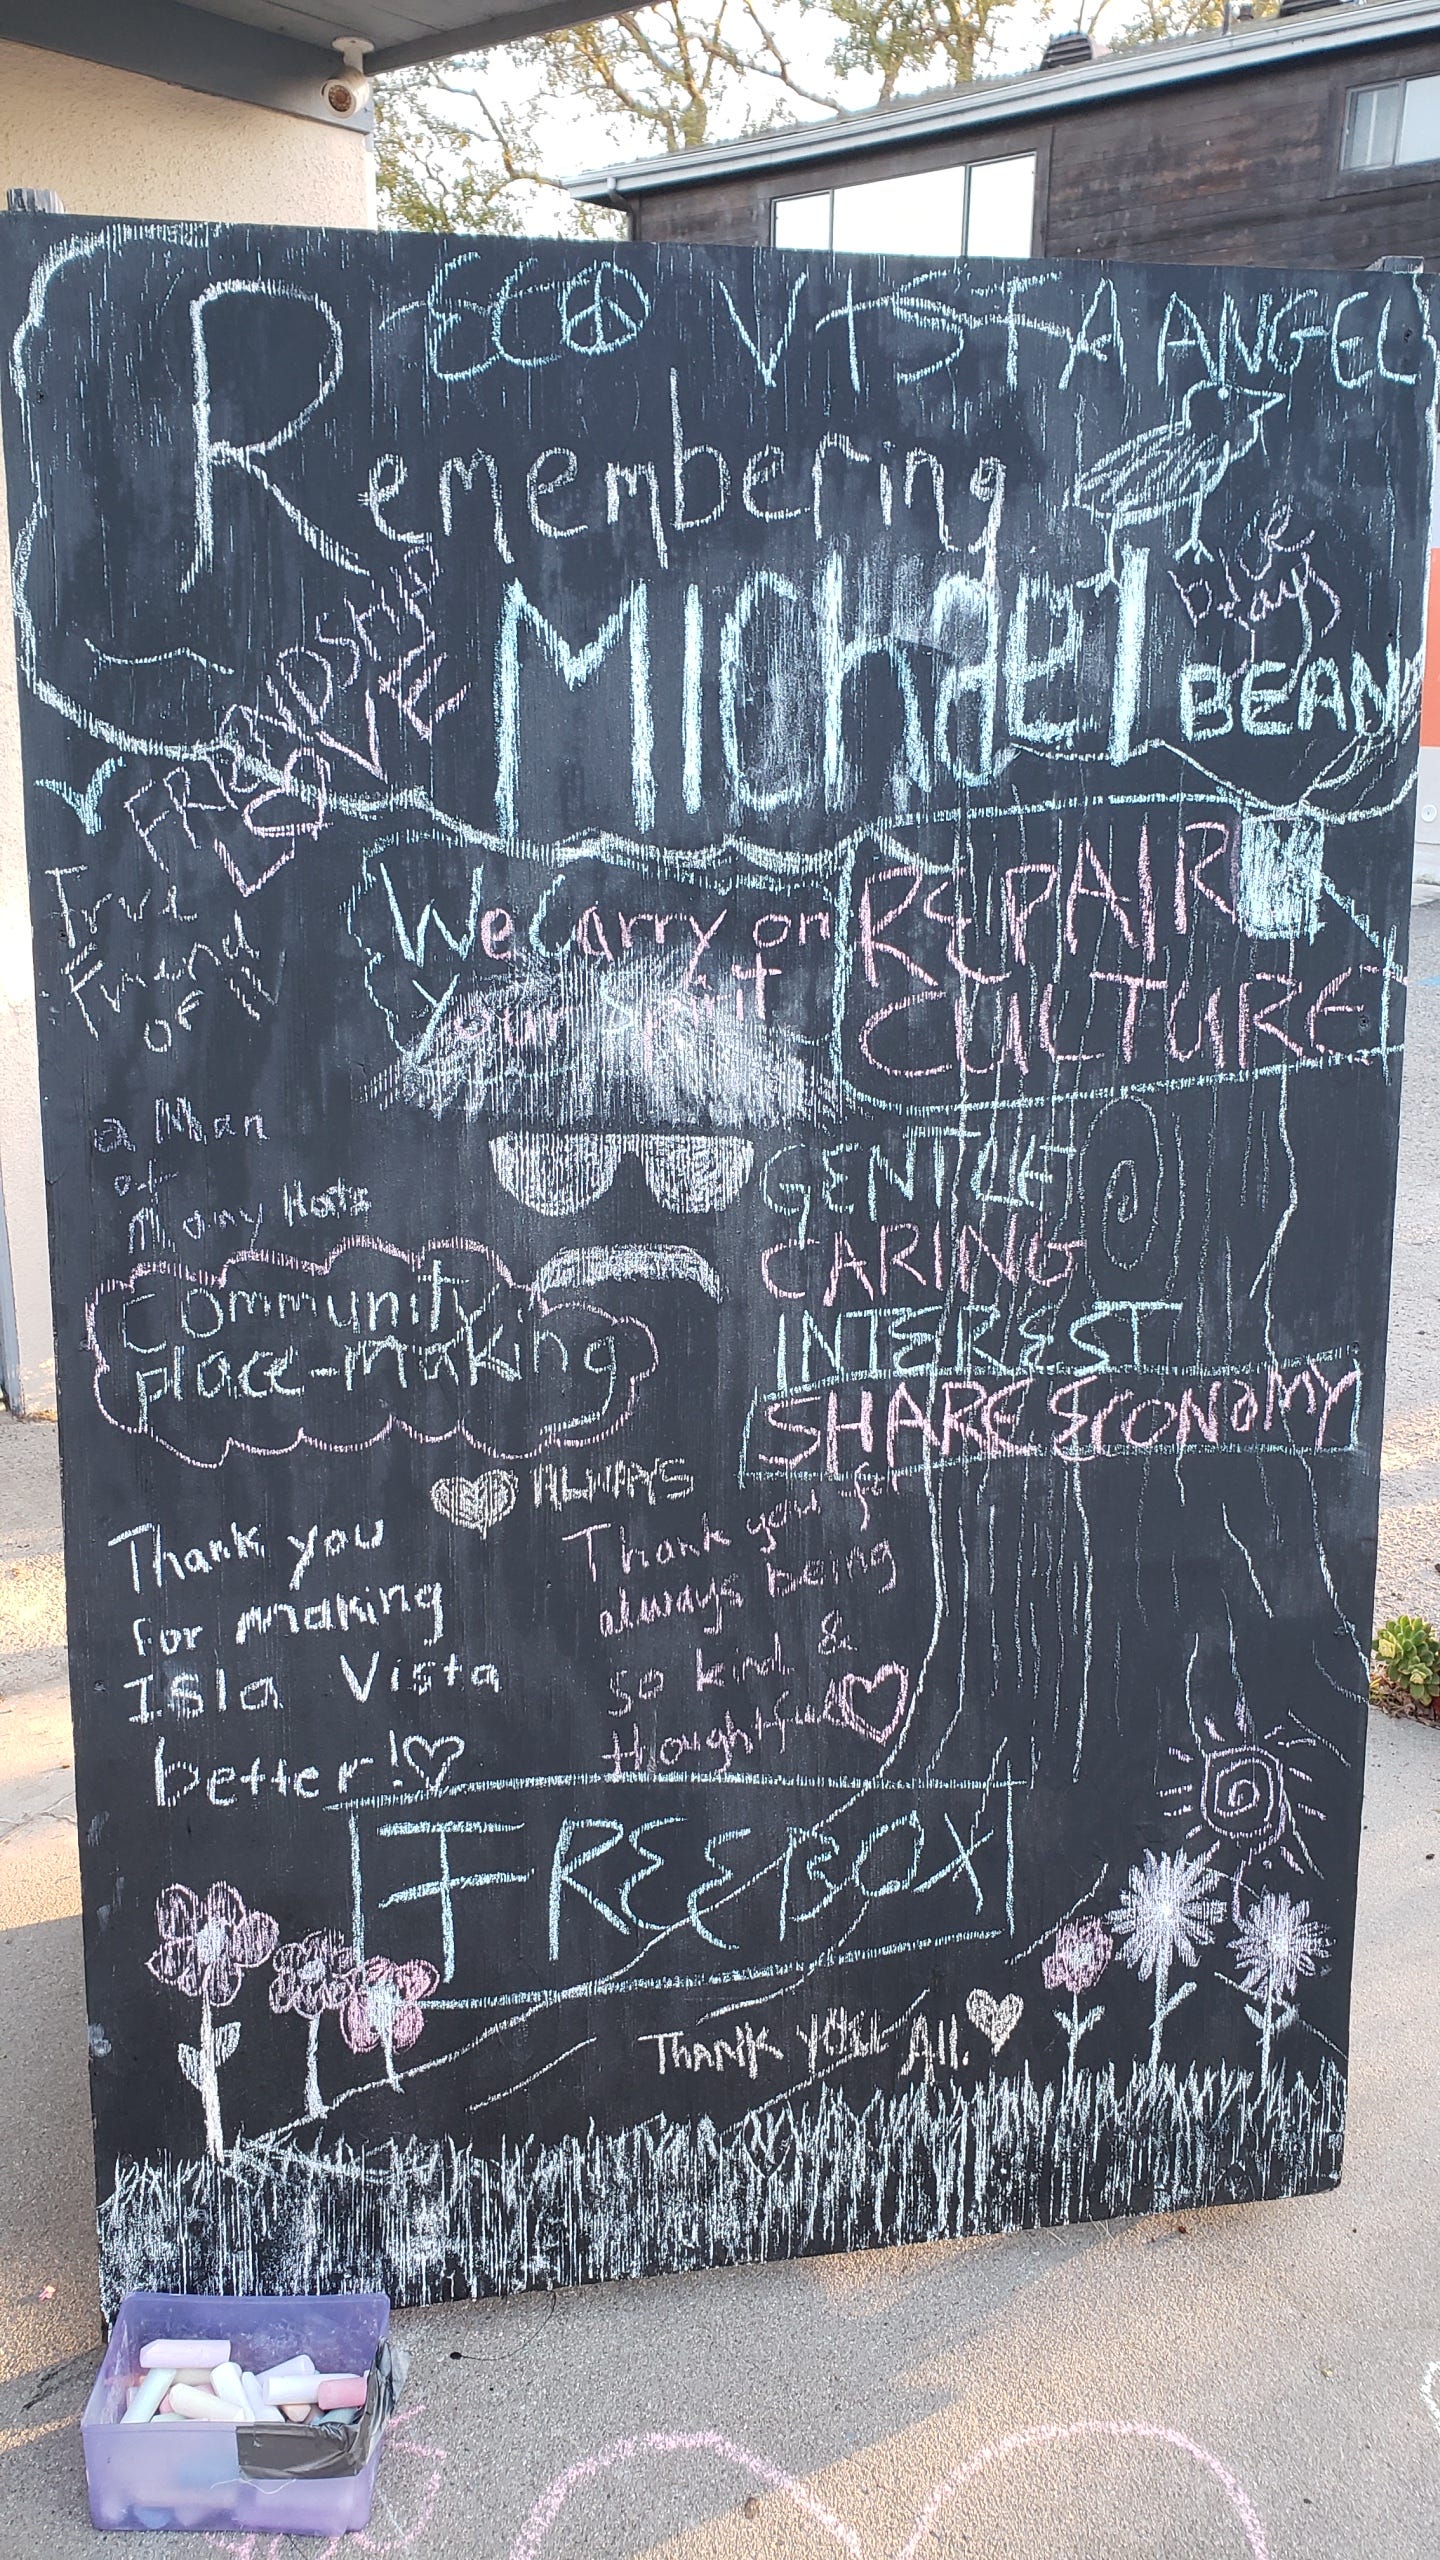 ECO VISTA ANGEL
Remembering
MIChael
BEAN
FRIENDSHIP
LOVE
True
Friend
of IV
We Carry on
Your Spirit
REPAIR
CULTURE
a Man
of
Many Hats
GENTLE
CARING
INTEREST
SHARE ECONOMY
Community
place-Making
ALWAYS
Thank you
for making
Isla Vista
better!
Thank you for
always being
so kind &
thoughtful
FREEBOX
THANK YOU All.